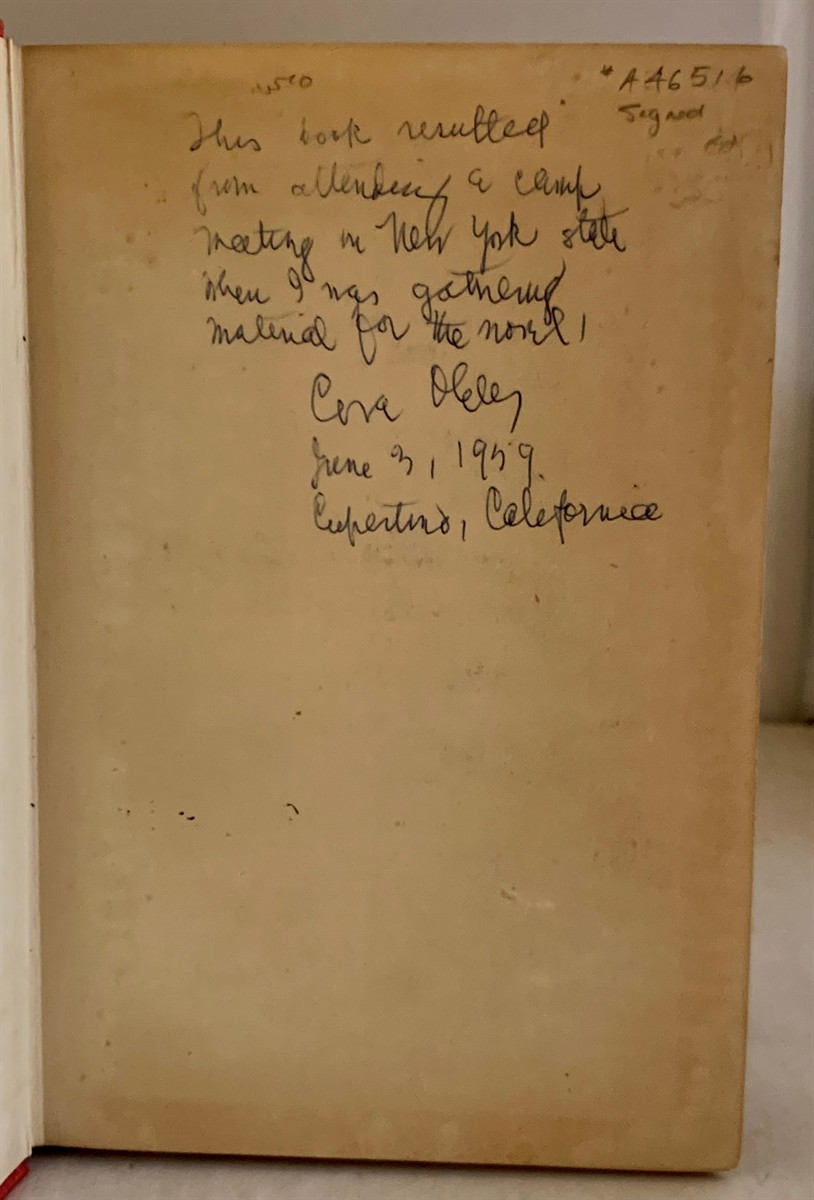 * A46516
Signed
This book resulted
from attending a camp
meeting in New York state
when I was gathering
material for the novel!
Cora
June 3, 1959.
Cupertino, California